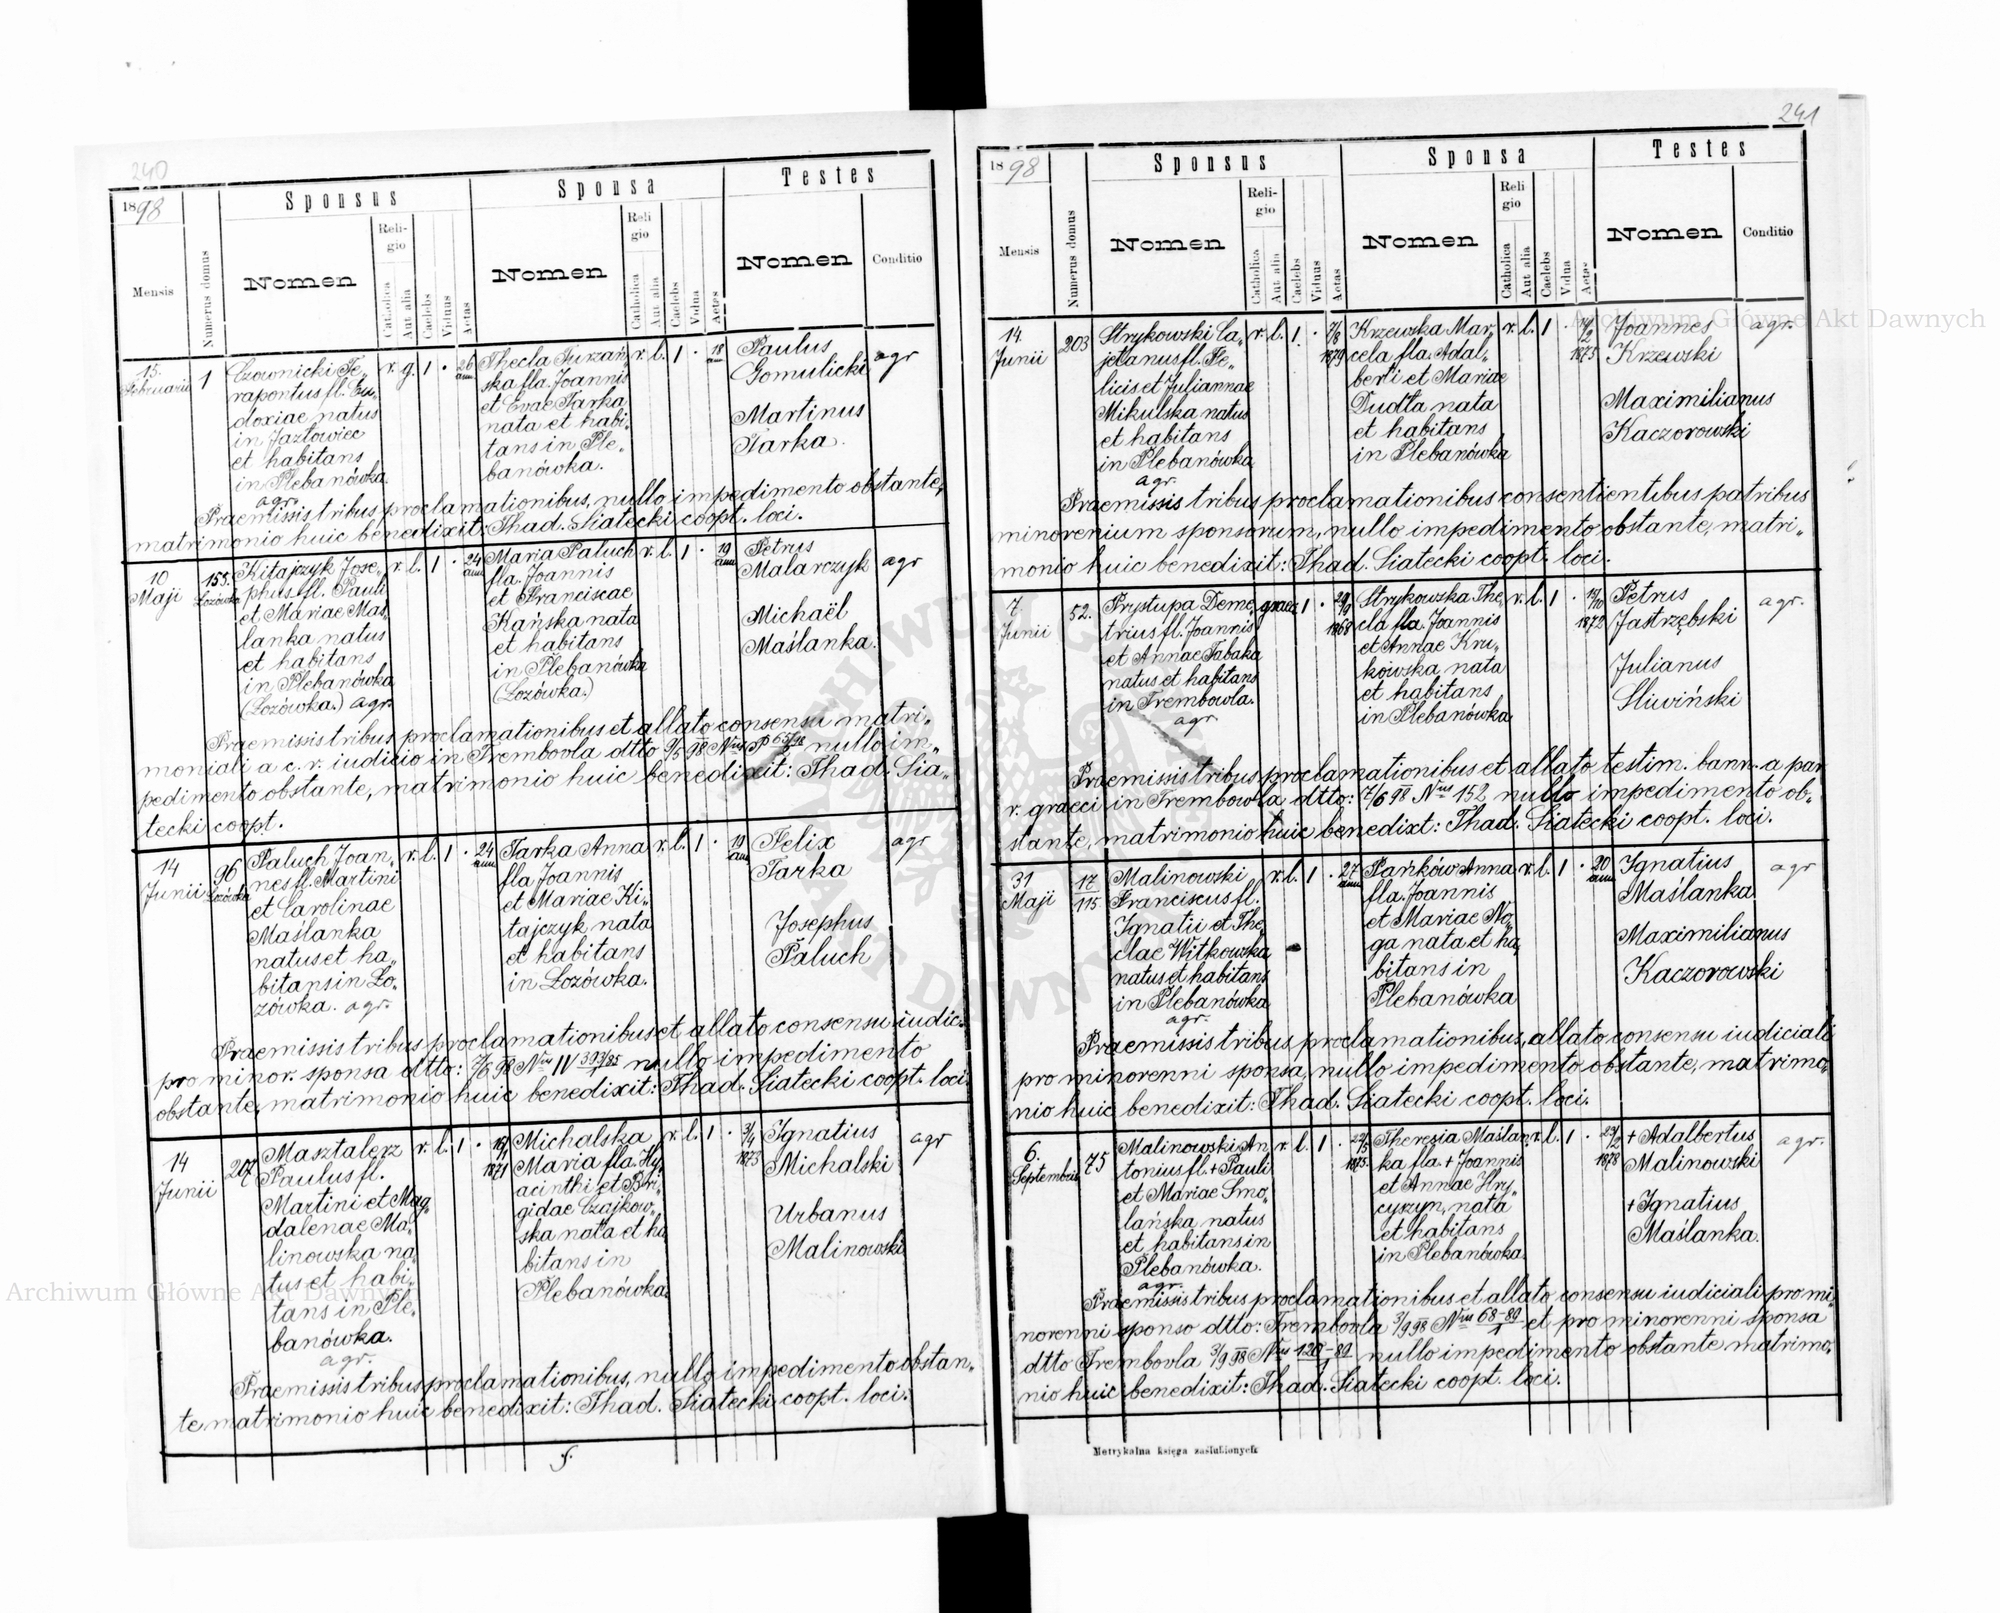 240
1898
Sponsus
Sponsa
Testes
Mensis
Numerus domus
Nomen
Religio
Catholica
Aut alia
Caelebs
Viduus
Aetas
Nomen
Religio
Catholica
Aut alia
Caelebs
Vidua
Aetas
Nomen
Conditio
15.
Februarii
1
Czownicki Fe„
rapontus fl. Eu„
doxiae natus
in Jazłowiec
et habitans
in Plebanówka
agr.
r. g. 1 .
26
ann
Thecla Turzań„
ska fla. Joannis
et Evae Tarka
nata et habi„
tans in Ple„
banówka.
r. l. 1 .
18
ann
Paulus
Gomulicki
Martinus
Tarka.
agr
Praemissis tribus proclamationibus, nullo impedimento obstante,
matrimonio huic benedixit: Thad. Siatecki coopt. loci.
10
Maji
155.
Łozówka
Kitajczyk Jose„
phus fl. Pauli
et Mariae Maś„
lanka natus
et habitans
in Plebanówka
(Łozówka.) agr.
r. l. 1 .
24
ann
Maria Paluch
fla. Joannis
et Franciscae
Kańska nata
et habitans
in Plebanówka
(Łozówka.)
r. l. 1 .
19
ann
Petrus
Malarczyk
Michaël
Maślanka.
agr
Praemissis tribus proclamationibus et allato consensu matri„
moniali a c. r. iudicio in Trembovla dtto 9/5 98 Nrus P nullo im„
pedimento obstante, matrimonio huic benedixit: Thad. Sia„
tecki coopt.
14
Junii
96
Łozówka
Paluch Joan„
nes fl. Martini
et Carolinae
Maślanka
natus et ha„
bitans in Ło„
zówka. agr.
r. l. 1 .
24
ann
Tarka Anna
fla Joannis
et Mariae Ki„
tajczyk, nata
et habitans
in Łozówka.
r. l. 1 .
19
ann
Felix
Tarka
Josephus
Paluch
agr
Praemissis tribus proclamationibus et allato consensu iudic.
pro minor. sponsa dtto: 2/6 98 Nrus IV 393/85 nullo impedimento
obstante, matrimonio huic benedixit: Thad. Siatecki coopt. loci.
14
Junii
207
Masztalerz
Paulus fl.
Martini et Mag„
dalenae Ma„
linowska na„
tus et habi„
tans in Ple„
banówka.
agr.
r. l. 1 .
1871
Michalska
Maria fla. Hy„
acinthi et Bri„
gidae Czajkow„
ska nata et ha„
bitans in
Plebanówka.
r. l. 1 .
3/4
1873
Ignatius
Michalski
Urbanus
Malinowski
agr
Praemissis tribus proclamationibus, nullo impedimento obstan„
te matrimonio huic benedixit: Thad. Siatecki coopt. loci.
241
1898
Sponsus
Sponsa
Testes
Mensis
Numerus domus
Nomen
Religio
Catholica
Aut alia
Caelebs
Viduus
Aetas
Nomen
Religio
Catholica
Aut alia
Caelebs
Vidua
Aetas
Nomen
Conditio
14.
Junii
203
Strykowski Ca„
jetanus fl. Fe„
licis et Juliannae
Mikulska natus
et habitans
in Plebanówka
agr.
r. l. 1. .
7/8
1879
Krzewska Mar„
cela fla. Adal„
berti et Mariae
Dudła nata
et habitans
in Plebanówka
r. l. 1 .
1875
Joannes
Krzewski
Maximilianus
Kaczorowski
agr.
Praemissis tribus proclamationibus consentientibus patribus
minorenium sponsorum, nullo impedimento obstante, matri„
monio huic benedixit: Thad. Siatecki coopt. loci.
7
Junii
52.
Prystupa Deme„
trius fl. Joannis
et Annae Tabaka
natus et habitans
in Trembowla.
agr
graec. 1 .
29/9
1868
Strykowska The„
cla fla. Joannis
et Annae Kru„
kowska nata
et habitans
in Plebanówka
r. l. 1 .
1872
Petrus
Jastrzębski
Julianus
Śliwiński
agr.
Praemissis tribus proclamationibus et allato testim. bann. a par
r. graeci in Trembowla dtto: 7/6 98 Nrus 152 nullo impedimento ob„
stante, matrimonio huic benedixt: Thad. Siatecki coopt. loci.
31
Maji
17
115
Malinowski
Franciscus fl.
Ignatii et The„
clae Witkowska
natus et habitans
in Plebanówka
agr.
r. l. 1 .
27
ann
Pańków Anna
fla. Joannis
et Mariae No„
ga nata et ha„
bitans in
Plebanówka
r. l. 1 .
20
ann
Ignatius
Maślanka
Maximilianus
Kaczorowski
agr
Praemissis tribus proclamationibus, allato consensu iudiciali
pro minorenni sponsa, nullo impedimento obstante, matrimo„
nio huic benedixit: Thad. Siatecki coopt. loci.
6.
Septembris
75
Malinowski An„
tonius fl. + Pauli
et Mariae Smo„
lańska natus
et habitans in
Plebanówka.
agr.
r. l. 1 .
1875.
Theresia Maślan„
ka fla. + Joannis
et Annae Hry„
cyszyn, nata
et habitans
in Plebanówka.
r. l. 1 .
1878
+ Adalbertus
Malinowski
+ Ignatius
Maślanka.
agr.
Praemissis tribus proclamationibus et allato consensu iudiciali pro mi„
norenni sponso dtto: Trembovla 3/9 98 Nrus 68-89/1 et pro minorenni sponsa
dtto Trembovla 3/9 98 Nrus 120-89/1 nullo impedimento obstante matrimo„
nio huic benedixit: Thad. Siatecki coopt. loci.
Metrykalna księga zaślubionych
Archiwum Główne Akt Dawnych
Archiwum Główne Akt Dawnych